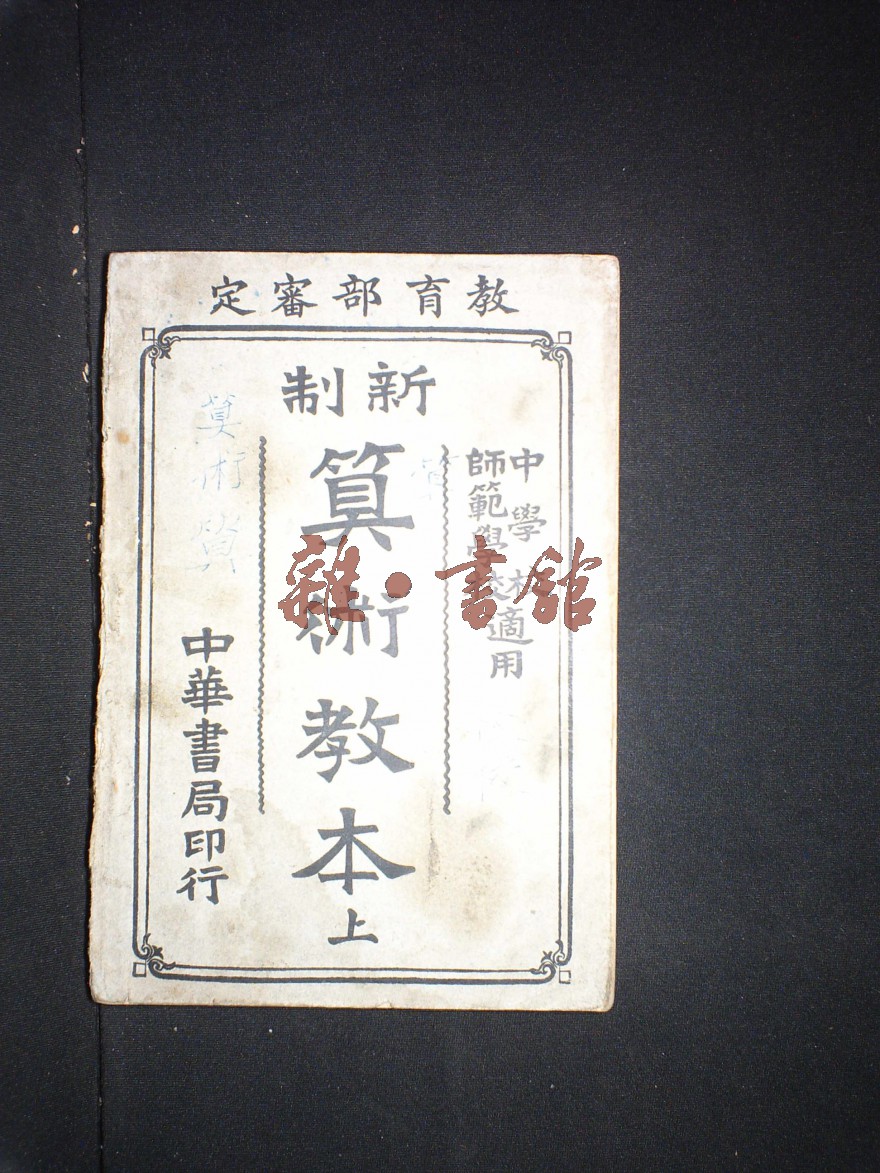 教育部審定
新制
中學校
師範學校
適用
算術教本上
中華書局印行
算術
雜·書館